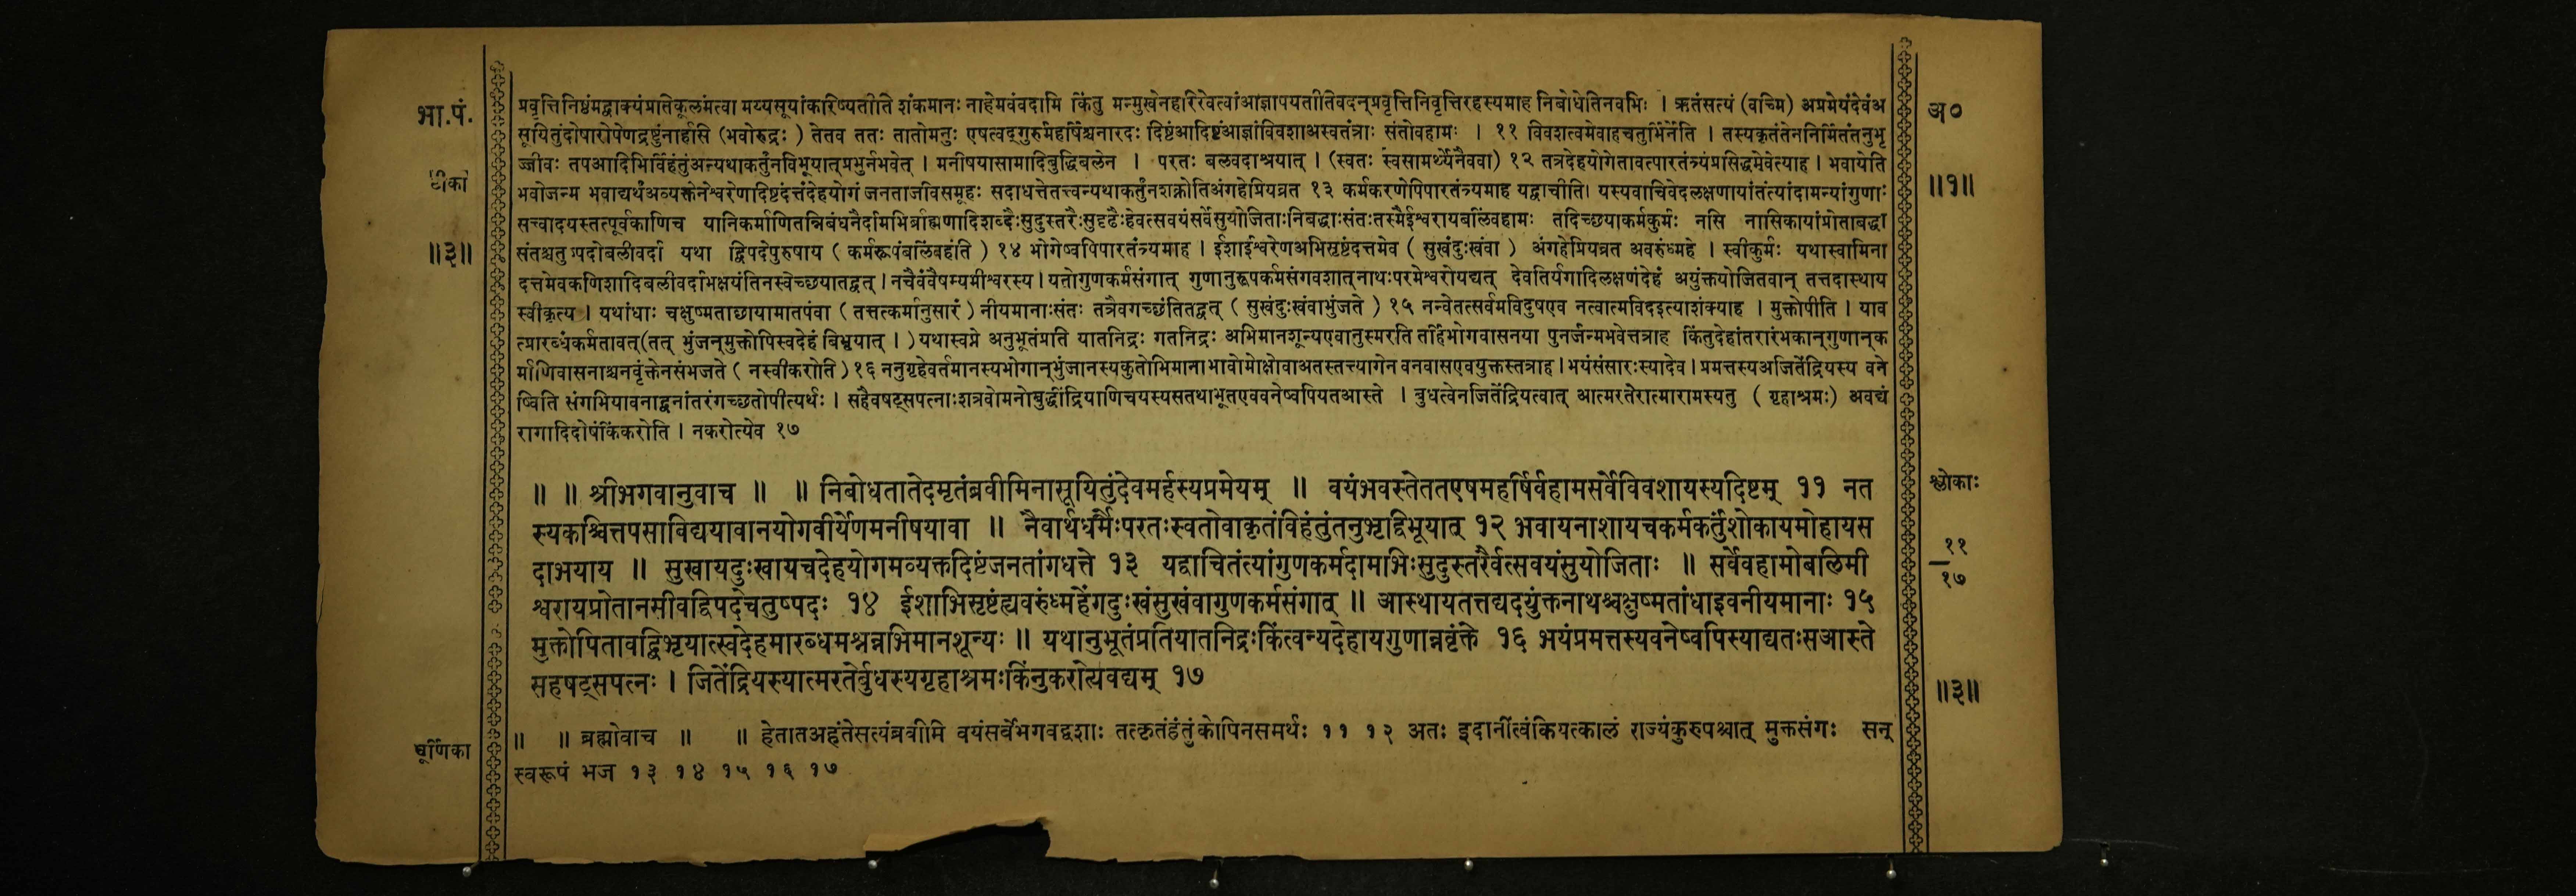 भा.पं.
टीका
॥३॥
प्रवृत्तिनिष्ठंमद्वाक्यंप्रातिकूलंमत्वा मय्यसूयांकरिष्यतीति शंकमानः नाहेमवंवदामि किंतु मन्मुखेनहरिरेवत्वांआज्ञापयतीतिवदन्प्रवृत्तिनिवृत्तिरहस्यमाह निबोधेतिनवभिः । ऋतंसत्यं (वच्मि) अप्रमेयंदेवंअ
सूयितुंदोषारोपेणद्रष्टुंनार्हसि (भवोरुद्रः ) तेतव ततः तातोमनुः एषत्वद्गुरुर्महर्षिश्चनारदः दिष्टंआदिष्टंआज्ञांविवशाअस्वतंत्राः संतोवहामः । ११ विवशत्वमेवाहचतुर्भिर्नेति । तस्यकृतंतेननिर्मितंतनुभृ
ज्जीवः तपआदिभिर्विहंतुंअन्यथाकर्तुंनविभूयात्प्रभुर्नभवेत् । मनीषयासामादिबुद्धिबलेन । परतः बलवदाश्रयात् । (स्वतः स्वसामर्थ्येनैववा) १२ तत्रदेहयोगेतावत्पारतंत्र्यंप्रसिद्धमेवेत्याह । भवायेति
भवोजन्म भवाद्यर्थंअव्यक्तेनेश्वरेणादिष्टंदत्तंदेहयोगं जनताजीवसमूहः सदाधत्तेतत्त्वन्यथाकर्तुंनशक्नोतिअंगहेप्रियव्रत १३ कर्मकरणेपिपारतंत्र्यमाह यद्वाचीति। यस्यवाचिवेदलक्षणायांतंत्यांदामन्यांगुणाः
सत्त्वादयस्तत्पूर्वकाणिच यानिकर्माणितन्निबंधनैर्दामभिर्ब्राह्मणादिशब्दैःसुदुस्तरैःसुदृढैःहेवत्सवयंसर्वेसुयोजिताःनिबद्धाःसंतःतस्मैईश्वरायबलिंवहामः तदिच्छयाकर्मकुर्मः नसि नासिकायांप्रोताबद्धा
संतश्चतुष्पदोबलीवर्दा यथा द्विपदेपुरुषाय ( कर्मरूपंबलिंवहंति ) १४ भोगेष्वपिपारतंत्र्यमाह । ईशाईश्वरेणअभिसृष्टंदत्तमेव ( सुखंदुःखंवा ) अंगहेप्रियव्रत अवरुंध्महे । स्वीकुर्मः यथास्वामिना
दत्तमेवकणिशादिबलीवर्दाभक्षयंतिनस्वेच्छयातद्वत् । नचैवंवैषम्यमीश्वरस्य । यतोगुणकर्मसंगात् गुणानुरूपकर्मसंगवशात्नाथःपरमेश्वरोयद्यत् देवतिर्यगादिलक्षणंदेहं अयुंक्तयोजितवान् तत्तदास्थाय
स्वीकृत्य । यथांधाः चक्षुष्मताछायामातपंवा ( तत्तत्कर्मानुसारं ) नीयमानाःसंतः तत्रैवगच्छंतितद्वत् ( सुखंदुःखंवाभुंजते ) १५ नन्वेतत्सर्वमविदुषएव नत्वात्मविदइत्याशंक्याह । मुक्तोपीति । याव
त्प्रारब्धंकर्मतावत्(तत् भुंजन्मुक्तोपिस्वदेहं बिभृयात् । ) यथास्वप्ने अनुभूतंप्रति यातनिद्रः गतनिद्रः अभिमानशून्यएवानुस्मरति तर्हिभोगवासनया पुनर्जन्मभवेत्तत्राह किंतुदेहांतरारंभकान्गुणान्क
र्माणिवासनाश्चनवृंक्तेनसंभजते ( नस्वीकरोति ) १६ ननुगृहेवर्तमानस्यभोगान्भुंजानस्यकुतोभिमाना भावोमोक्षोवाअतस्तत्त्यागेन वनवासएवयुक्तस्तत्राह । भयंसंसारःस्यादेव । प्रमत्तस्यअजितेंद्रियस्य वने
ष्विति संगभियावनाद्वनांतरंगच्छतोपीत्यर्थः । सहैवषट्सपत्नाःशत्रवोमनोबुद्धींद्रियाणिचयस्यसतथाभूतएववनेष्वपियतआस्ते । बुधत्वेनजितेंद्रियत्वात् आत्मरतेरात्मारामस्यतु ( गृहाश्रमः) अवद्यं
रागादिदोषंकिंकरोति । नकरोत्येव १७
॥ ॥ श्रीभगवानुवाच ॥ ॥ निबोधतातेदमृतंब्रवीमिनासूयितुंदेवमर्हस्यप्रमेयम् ॥ वयंभवस्तेततएषमहर्षिर्वहामसर्वेविवशायस्यदिष्टम् ११ नत
स्यकश्चित्तपसाविद्ययावानयोगवीर्येणमनीषयावा ॥ नैवार्थधर्मैःपरतःस्वतोवाकृतंविहंतुंतनुभृद्विभूयात् १२ भवायनाशायचकर्मकर्तुंशोकायमोहायस
दाभयाय ॥ सुखायदुःखायचदेहयोगमव्यक्तदिष्टंजनतांगधत्ते १३ यद्वाचितंत्यांगुणकर्मदामभिःसुदुस्तरैर्वत्सवयंसुयोजिताः ॥ सर्वेवहामोबलिमी
श्वरायप्रोतानसीवद्विपदेचतुष्पदः १४ ईशाभिसृष्टंह्यवरुंध्महेंगदुःखंसुखंवागुणकर्मसंगात् ॥ आस्थायतत्तद्यदयुंक्तनाथश्चक्षुष्मतांधाइवनीयमानाः १५
मुक्तोपितावद्बिभृयात्स्वदेहमारब्धमश्नन्नभिमानशून्यः ॥ यथानुभूतंप्रतियातनिद्रःकिंत्वन्यदेहायगुणान्नवृंक्ते १६ भयंप्रमत्तस्यवनेष्वपिस्याद्यतःसआस्ते
सहषट्सपत्नः । जितेंद्रियस्यात्मरतेर्बुधस्यगृहाश्रमःकिंनुकरोत्यवद्यम् १७
चूर्णिका
॥ ॥ ब्रह्मोवाच ॥ ॥ हेतातअहंतेसत्यंब्रवीमि वयंसर्वेभगवद्वशाः तत्कृतंहंतुंकोपिनसमर्थः ११ १२ अतः इदानींत्वंकियत्कालं राज्यंकुरुपश्चात् मुक्तसंगः सन्
स्वरूपं भज १३ १४ १५ १६ १७
अ०
॥१॥
श्लोकाः
११
१७
॥३॥